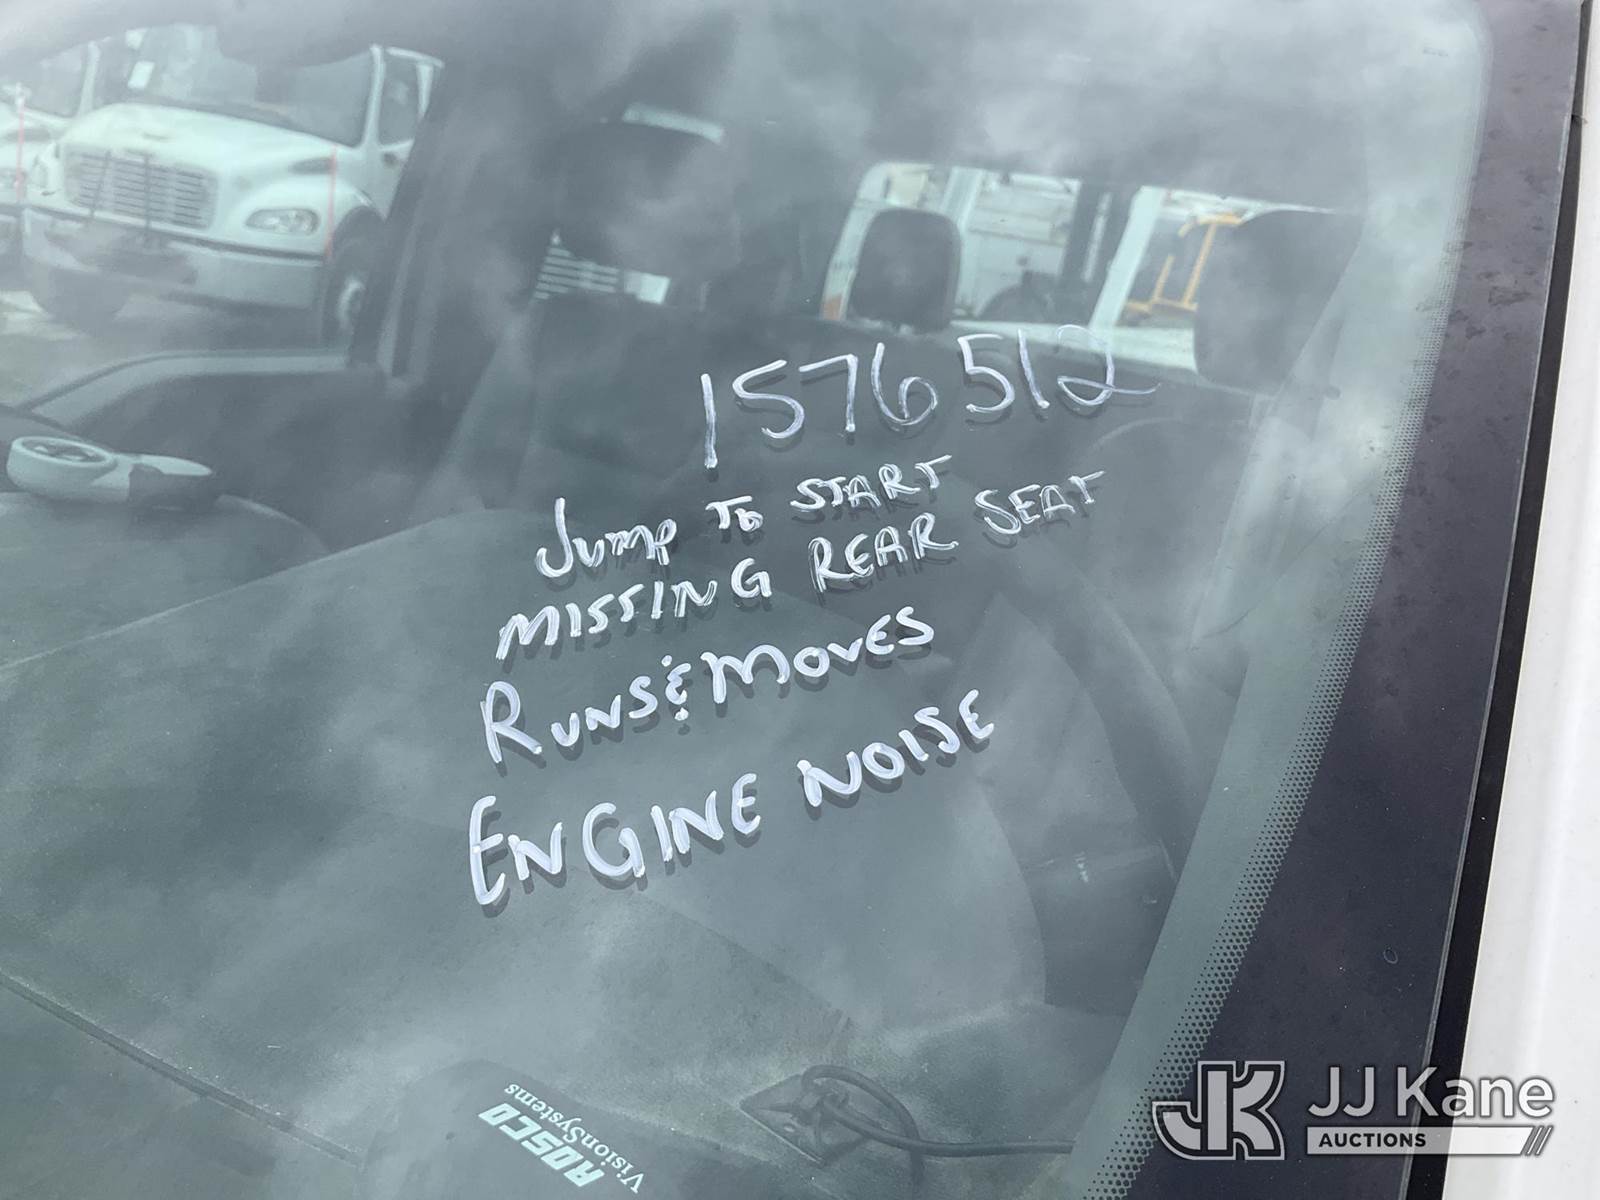 1576512
Jump To START
MISSING REAR SEAT
RUNS & MOVES
ENGINE NOISE
ROSCO
VisionSystems
JK
JJ Kane
AUCTIONS